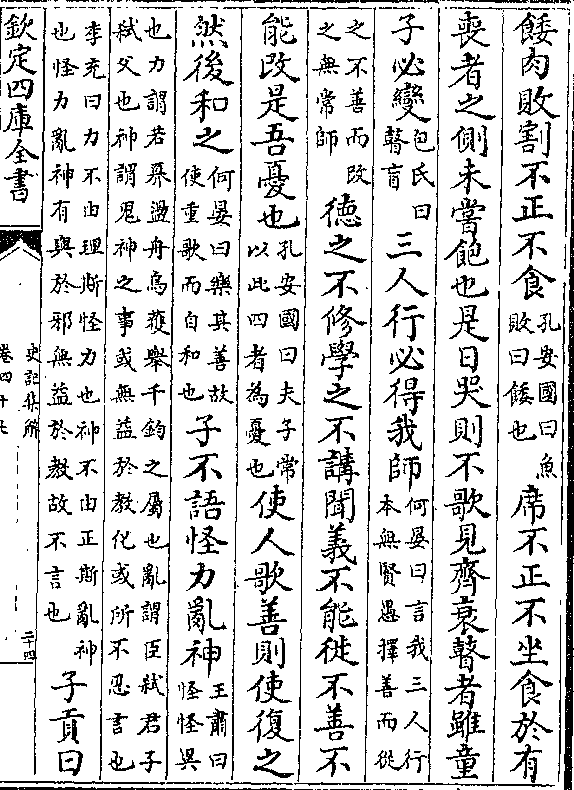 餧肉敗割不正不食孔安國曰魚敗曰餧也席不正不坐食於有
喪者之側未嘗飽也是日哭則不歌見齊衰瞽者雖童
子必變包氏曰瞽盲三人行必得我師何晏曰言我三人行本無賢愚擇善而從
之不善而改之無常師德之不修學之不講聞義不能徙不善不
能改是吾憂也孔安國曰夫子常以此四者為憂也使人歌善則使復之
然後和之何晏曰樂其善故使重歌而自和也子不語怪力亂神王肅曰怪怪異
也力謂若奡盪舟烏獲舉千鈞之屬也亂謂臣弑君子弑父也神謂鬼神之事或無益於教化或所不忍言也
李充曰力不由理斯怪力也神不由正斯亂神也怪力亂神有與於邪無益於教故不言也子貢曰
欽定四庫全書
史記集解
卷四十七
二十四